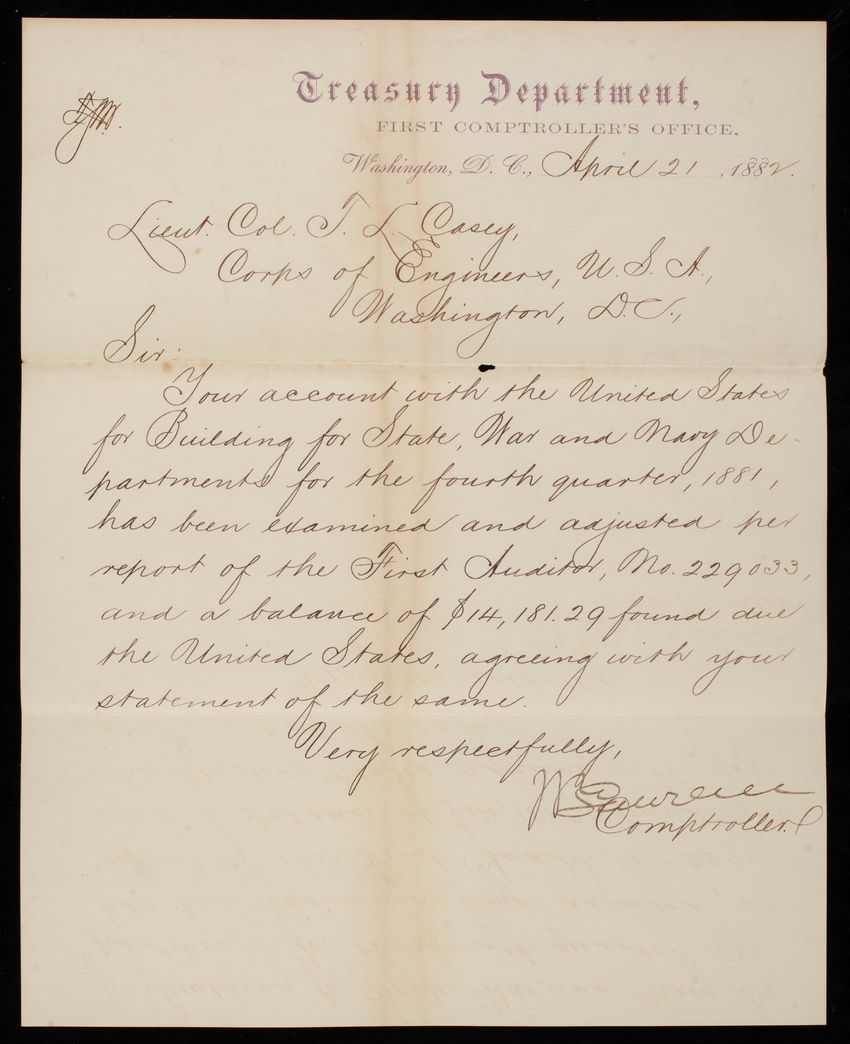 Treasury Department,
FIRST COMPTROLLER'S OFFICE,
Washington, D. C., April 21, 1882.
Lieut. Col. T. L. Casey,
Corps of Engineers, U. S. A.,
Washington, D.C.,
Sir:
Your account with the United States
for Building for State, War and Navy De-
partments for the fourth quarter, 1881,
has been examined and adjusted per
report of the First Auditor, No. 229033,
and a balance of $14,181.29 found due
the United States, agreeing with your
statement of the same.
Very respectfully,
Wm Lawrence
Comptroller.